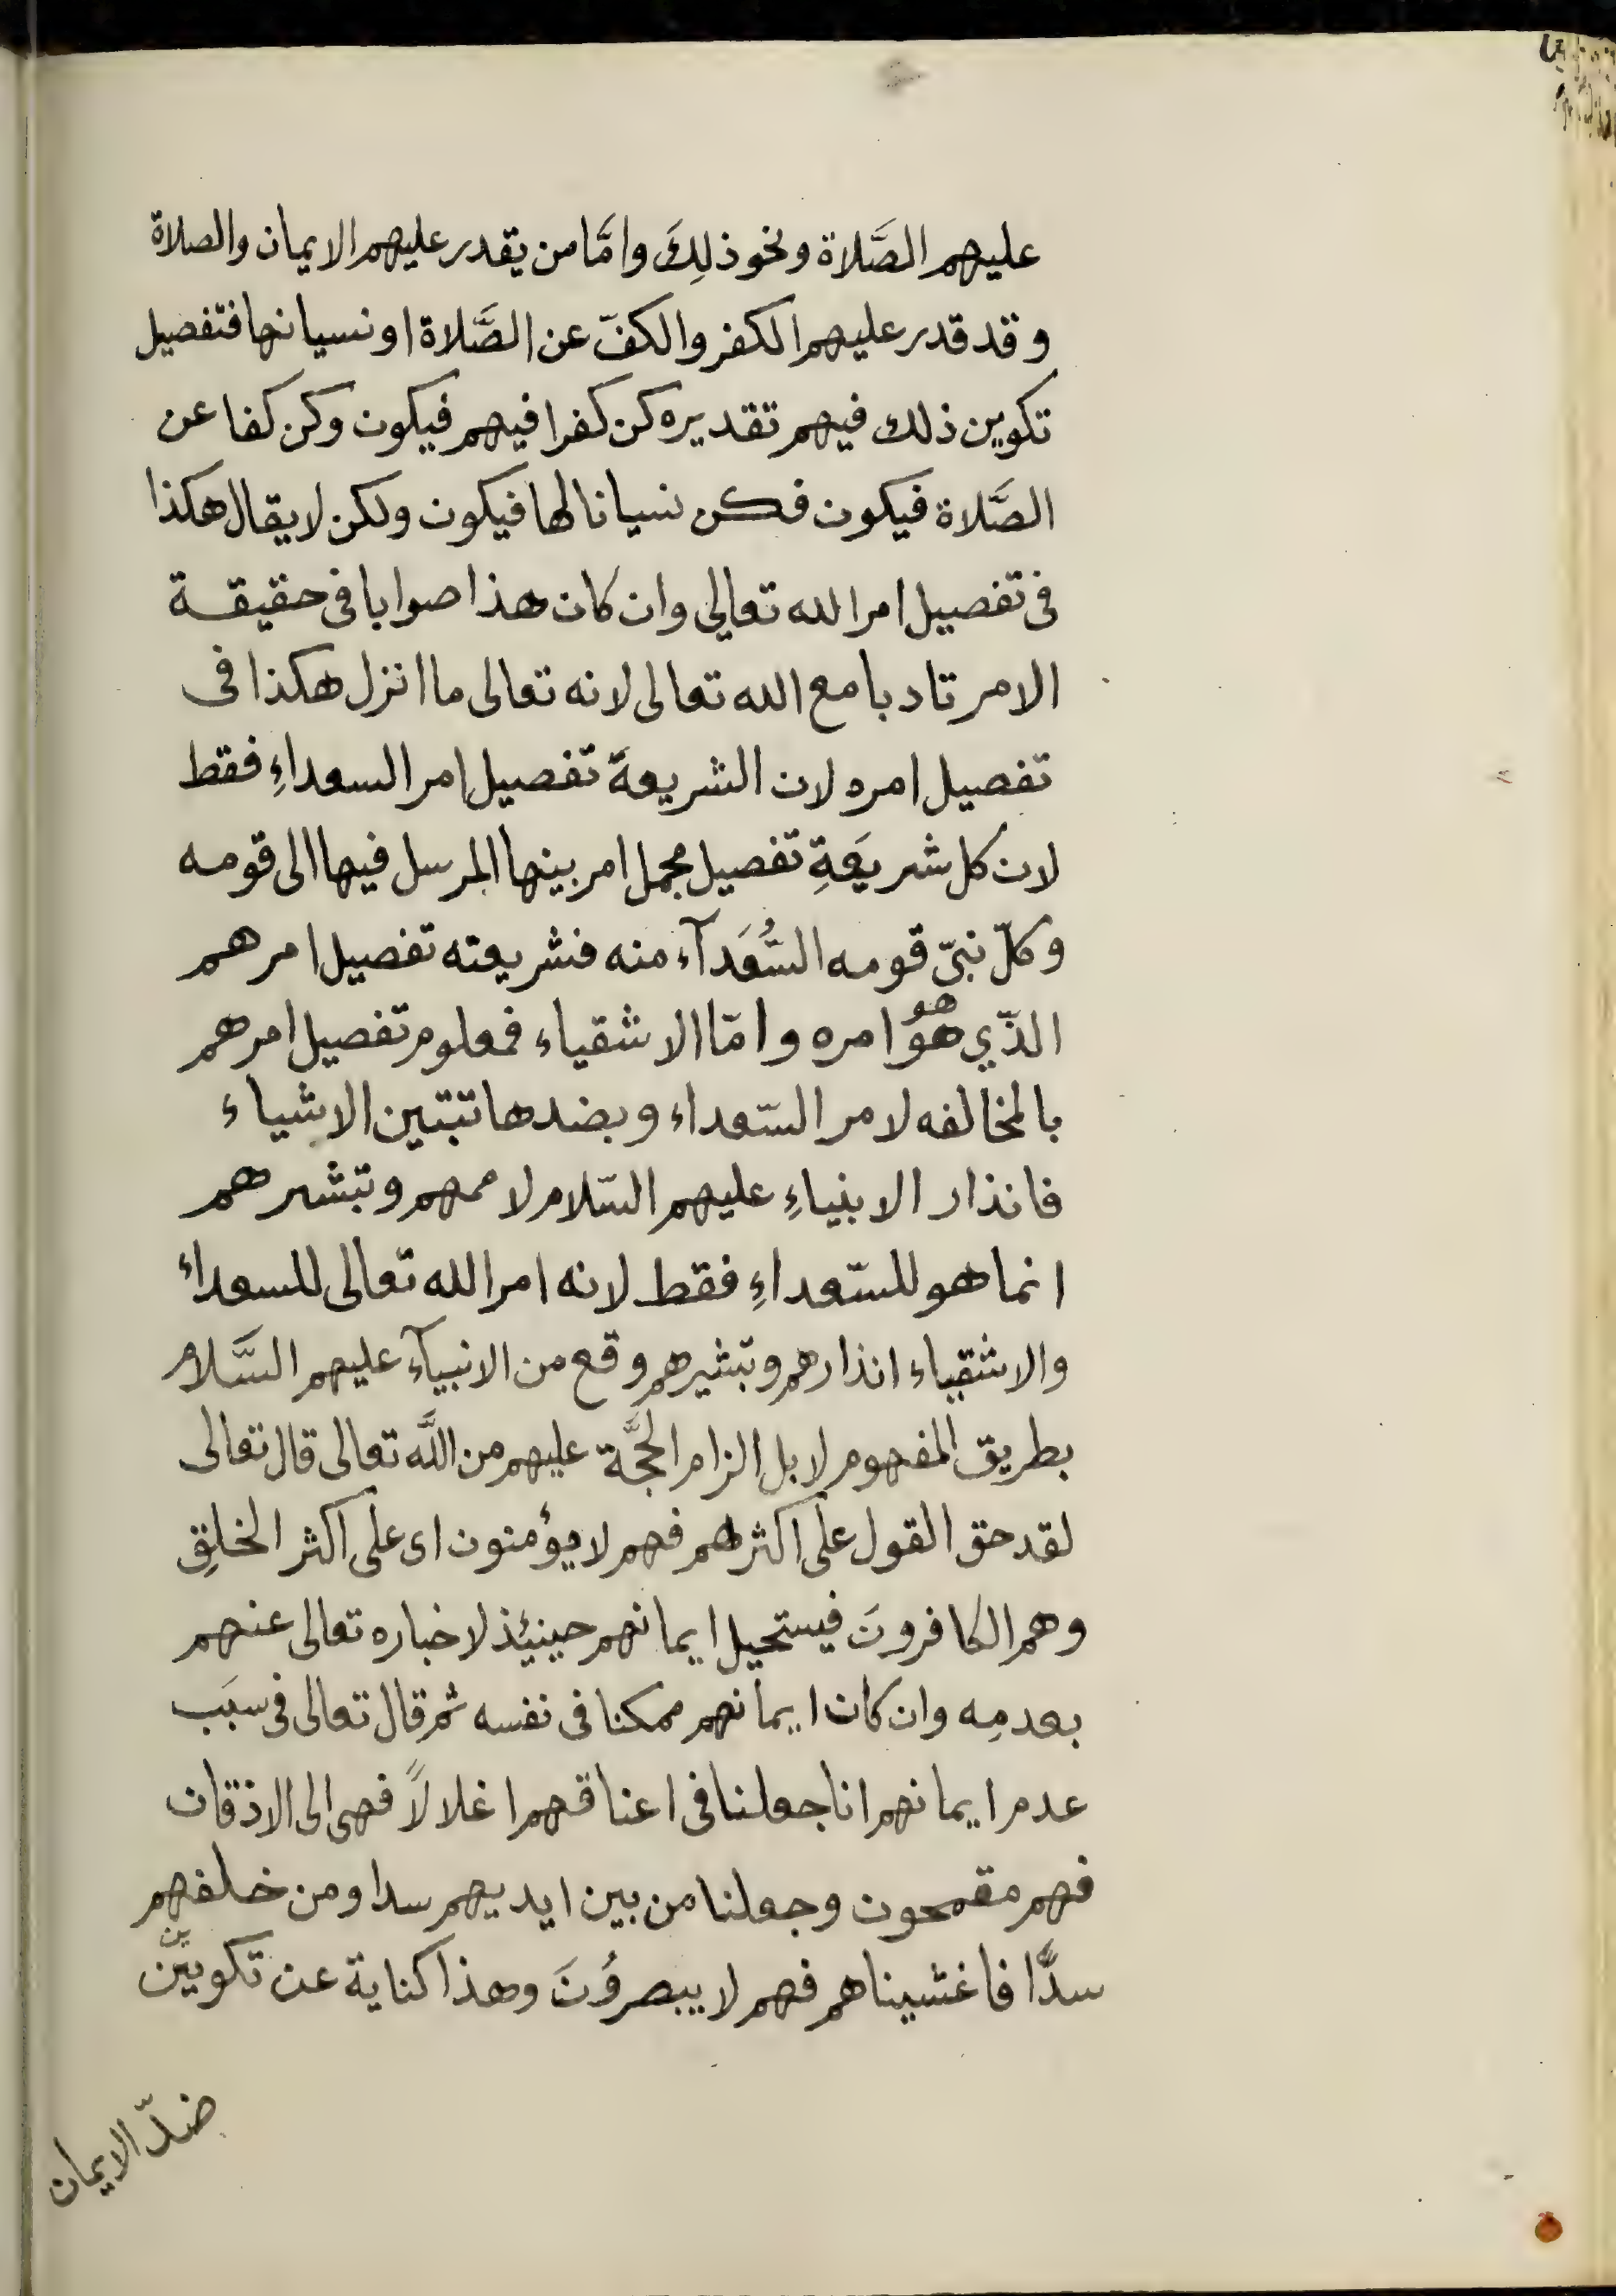 عليهم الصَّلاة ونحو ذلِكَ وامَّا من يقدر عليهم الايمان والصلاة
وقد قدر عليهم الكفر والكفّ عن الصَّلاة او نسيانها فتفصيل
تكوين ذلك فيهم تقديره كن كفرا فيهم فيكون وكن كفا عن
الصَّلاة فيكون فكن نسيانا لها فيكون ولكن لا يقال هكذا
فى تفصيل امر الله تعالي وان كان هذا صوابا فى حقيقة
الامر تادبا مع الله تعالى لانه تعالى ما انزل هكذا فى
تفصيل امره لان الشريعة تفصيل امر السعداءِ فقط
لان كل شريعَةٍ تفصيل مجمل امر بينها المرسل فيها الى قومه
وكلّ نبىّ قومه السُّعَدآء منه فشريعته تفصيل امرهم
الذّي هُوَ هو امره وامّا الاشقياء فمعلوم تفصيل امرهم
بالمخالفه لامر السّعداء وبضدها تتبتين الاشياء
فانذار الانبياءِ عليهم السّلام لاممهم وتبشرهم
انما هو للسّعداءِ فقط لانه امر الله تعالى للسعداء
والاشقياء انذارهم وتبشيرهم وقع من الانبيآء عليهم السَّلام
بطريق المفهوم لا بل الزام الحجَّة عليهم من اللَّه تعالى قال تعالى
لقد حق القول على اكثرهم فهم لا يؤمنون اى على اكثر الخلقِ
وهم الكافرونَ فيستحيل ايمانهم حينيئذ لاخباره تعالى عنهم
بعدمِه وان كان ايمانهم ممكنا فى نفسه ثم قال تعالى فى سبَب
عدم ايمانهم انا جعلنا فى اعناقهم اغلالاً فهى الى الاذقان
فهم مقمحون وجعلنا من بين ايديهم سدا ومن خلفهم
سدًّا فاغشيناهم فهم لا يبصرُونَ وهذا كناية عن تكويين
ضدّ الايمان